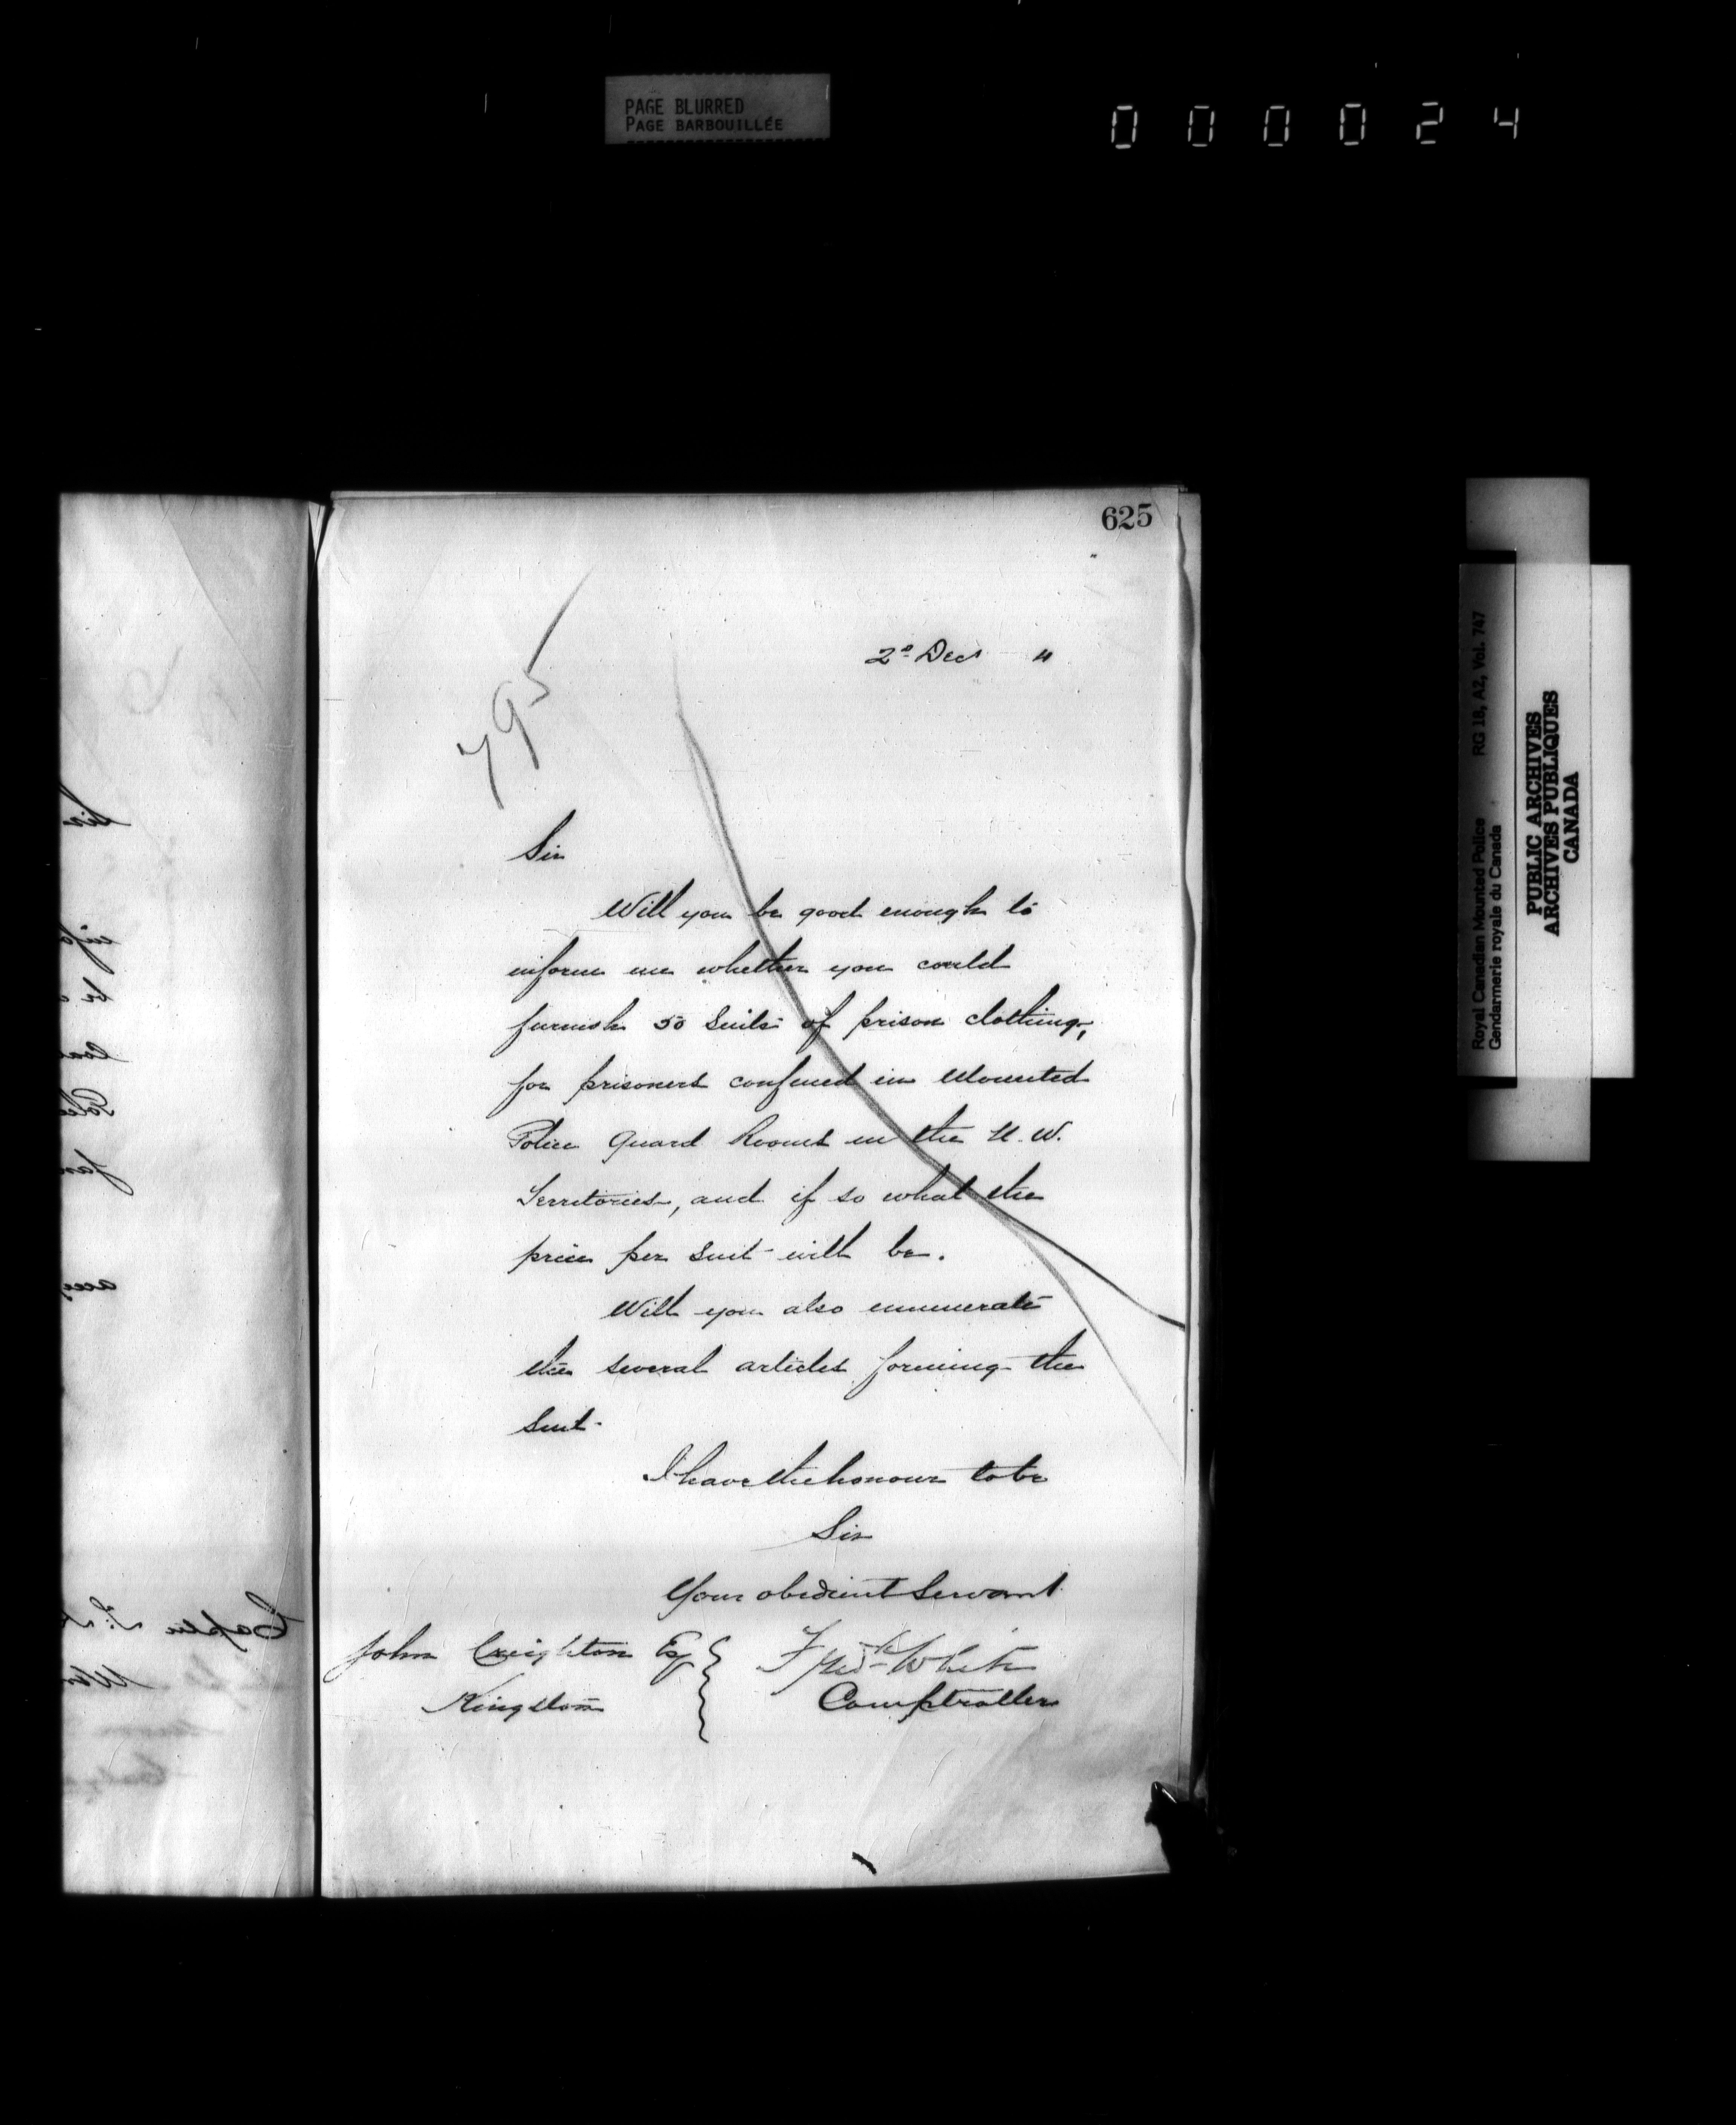 PAGE BLURRED
PAGE BARBOUILLÉE
000024
625
2d Decr 4
795
Sir
Will you be good enough to
inform me whether you could
furnish 50 Suits of prison clothing,
for prisoners confined in Mounted
Police Guard Rooms in the N. W.
Territories, and if so what the
price per Suit will be.
Will you also enumerate
the several articles forming the
Suit.
I have the honour to be
Sir
Your obedient Servant
Fredk White
Comptroller
John Creighton Esq
Kingston
Royal Canadian Mounted Police RG 18, A2, Vol. 747
Gendarmerie royale du Canada
PUBLIC ARCHIVES
ARCHIVES PUBLIQUES
CANADA